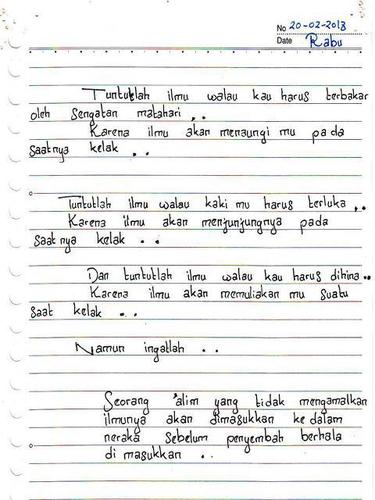 No 20-02-2013
Date Rabu
Tuntutlah ilmu walau kau harus terbakar
oleh sengatan matahari ..
Karena ilmu akan menaungi mu pada
saatnya kelak ..
Tuntutlah ilmu walau kaki mu harus terluka ..
Karena ilmu akan menjunjungnya pada
saat nya kelak ..
Dan tuntutlah ilmu walau kau harus dihina ..
Karena ilmu akan memuliakan mu suatu
saat kelak ...
Namun ingatlah ..
Seorang 'alim yang tidak mengamalkan
ilmunya akan dimasukkan ke dalam
neraka sebelum penyembah berhala
di masukkan ..